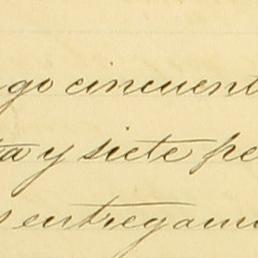 go cincuent
ta y siete pe
s entregam